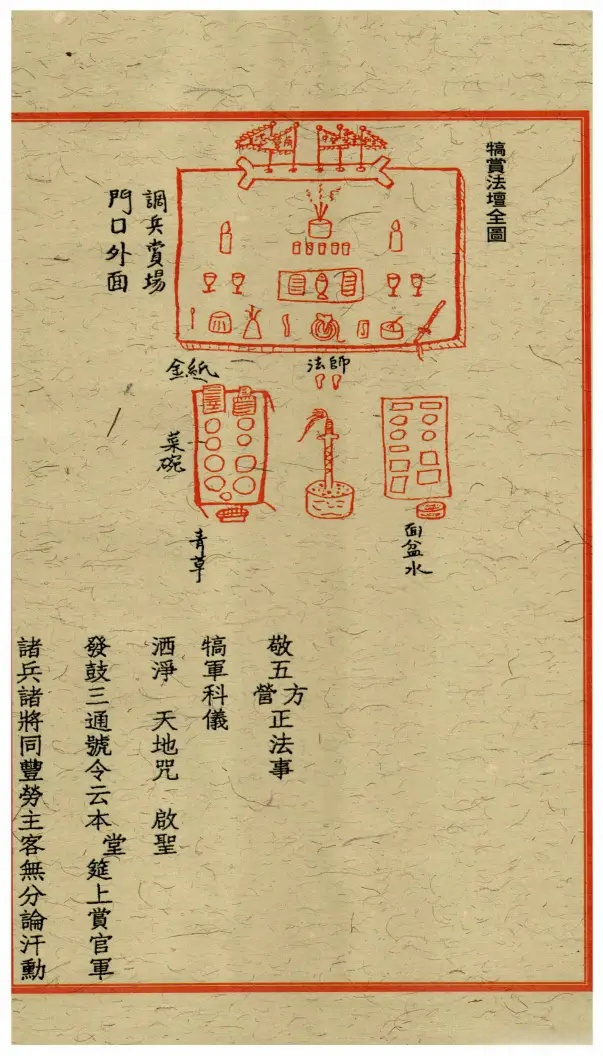 犒賞法壇全圖
調兵賞場
門口外面
法師
金紙
菜碗
青草
面盆水
敬五方營正法事
犒軍科儀
洒淨 天地咒 啟聖
發鼓三通號令云本堂筵上賞官軍
諸兵諸將同豐勞主客無分論汗勳